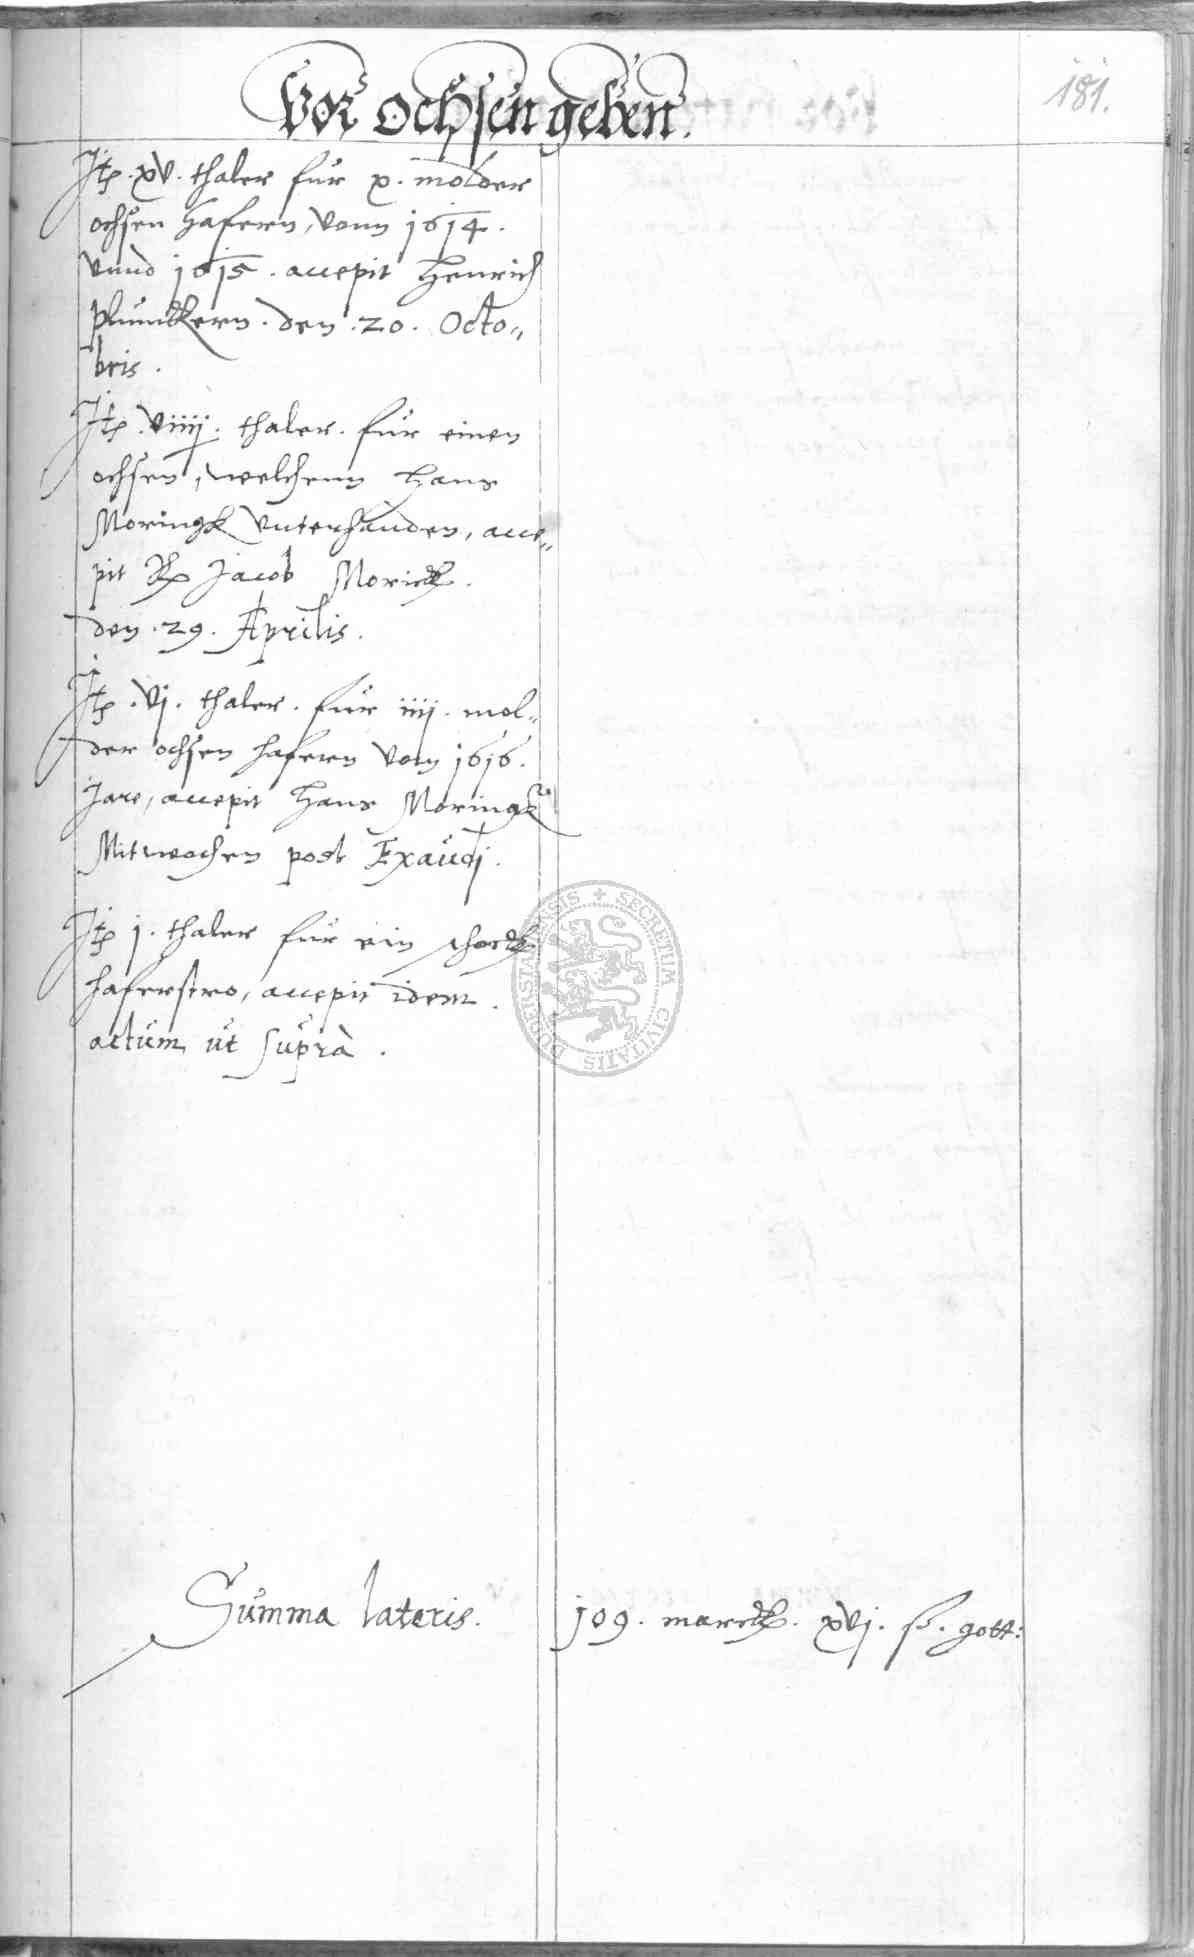 Vor ochsen geben.
181.
Itm. xv. thaler für x. molder
ochsen hafern, vonn 1614.
vnnd 1615. accepit Henrich
Plunckern. den. 20. Octo-
bris.
Itm. viiij. thaler. für einen
ochsen, welchenn Hans
Moringk vnterhanden, acce-
pit Jacob Morick.
den. 29. Aprilis.
Itm. vj. thaler. für iiij. mol-
der ochsen hafern vom 1616.
Jare, accepit Hans Moringk
Mitwochen post Exaudj.
Itm j. thaler für ein schock
haferstro, accepit idem.
actum ut suprà.
SECRETUM CIVITATIS DUDERSTADENSIS
Summa lateris. 109. marck. xvj. ß. gott: